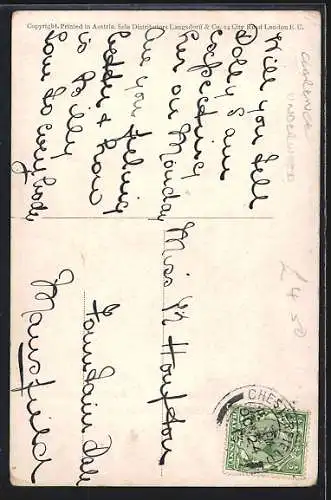 Copyright. Printed in Austria. Sole Distributors Langsdorff & Co. 24 City Road London E.C.
Will you tell
Dolly I am
expecting
her on Monday
are you feeling
better & how
is Billy
love to everybody
Miss M Houfton
Fountain Dale
Mansfield
CHESTERFIELD
CLARENCE
UNDERWOOD
£4.50